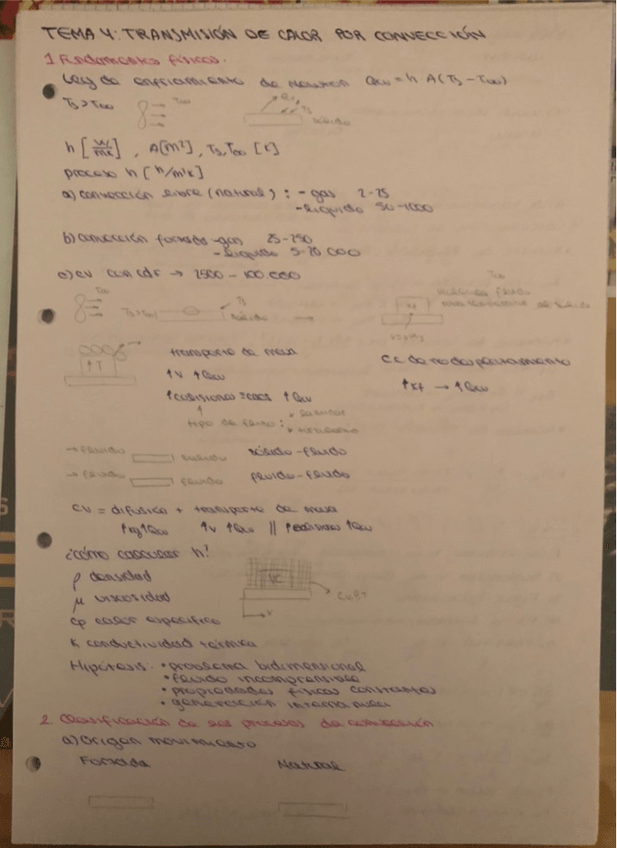 TEMA 4: TRANSMISIÓN DE CALOR POR CONVECCIÓN
1. Fundamentos físicos.
Ley de enfriamiento de Newton Qcv = h A (Ts - T∞)
Ts > T∞ T∞ Ts sólido
h [W/mK], A [m²], Ts, T∞ [K]
proceso h [h/m²K]
a) convección libre (natural): - gas 2-25
- líquido 50-1000
b) convección forzada - gas 25-250
- líquido 5-20.000
c) cv con cdf → 2500 - 100.000
T∞
Ts sólido
transporte de masa
↑v ↑Qcv
↑colisiones ↑Qcv
tipo de flujo:
↑kf → ↑Qcv
→ fluido sólido sólido - fluido
→ fluido fluido fluido - fluido
CV = difusión + transporte de masa
↑kf ↑Qcv ↑v ↑Qcv || ↑colisiones ↑Qcv
¿cómo calcular h?
ρ densidad
μ viscosidad
VC
cp calor específico
k conductividad térmica
Hipótesis: • problema bidimensional
• fluido incompresible
• propiedades físicas constantes
• generación interna nula
2. Clasificación de los procesos de convección
a) Origen movimiento
Forzada Natural